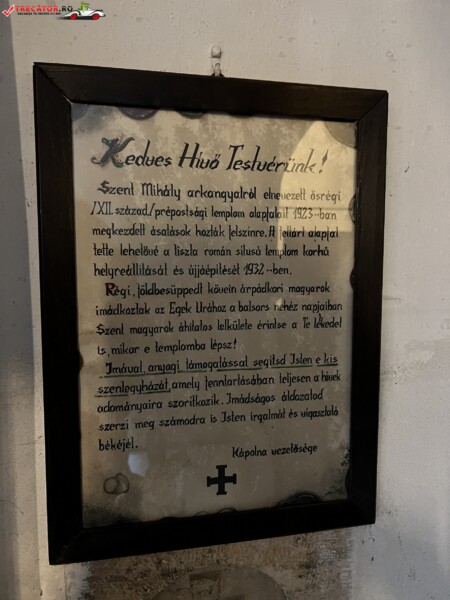 TRECATOR.RO
Kedves Hívő Testvérünk!
Szent Mihály arkangyalról elnevezett ősrégi
/XII. század/ prépostsági templom alapfalait 1923-ban
megkezdett ásatások hozták felszínre. A feltárt alapfal
tette lehetővé a tiszta román stílusú templom korhű
helyreállítását és újjáépítését 1932-ben.
Régi, földbesüppedt kövein árpádkori magyarok
imádkoztak az Egek Urához a balsors nehéz napjaiban
Szent magyarok áhítatos lelkülete érintse a Te lelkedet
is, mikor e templomba lépsz!
Imával, anyagi támogatással segítsd Isten e kis
szentegyházát, amely fenntartásában teljesen a hívek
adományaira szorítkozik. Imádságos áldozatod
szerzi meg számodra is Isten irgalmát és vigasztaló
békéjét.
Kápolna vezetősége